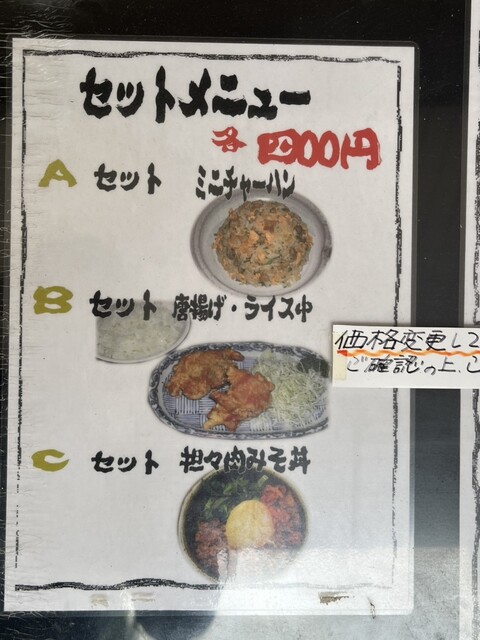 セットメニュー
各 四00円
A セット ミニチャーハン
B セット 唐揚げ・ライス中
価格変更して
ご確認の上、
C セット 担々肉みそ丼